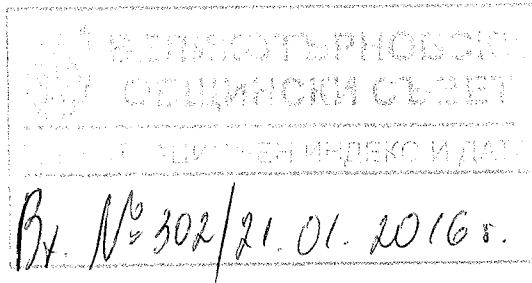 ВЕЛИКОТЪРНОВСКИ
ОБЩИНСКИ СЪВЕТ
ИНДЕКС И ДАТА
Вх. № 302/21.01.2016 г.